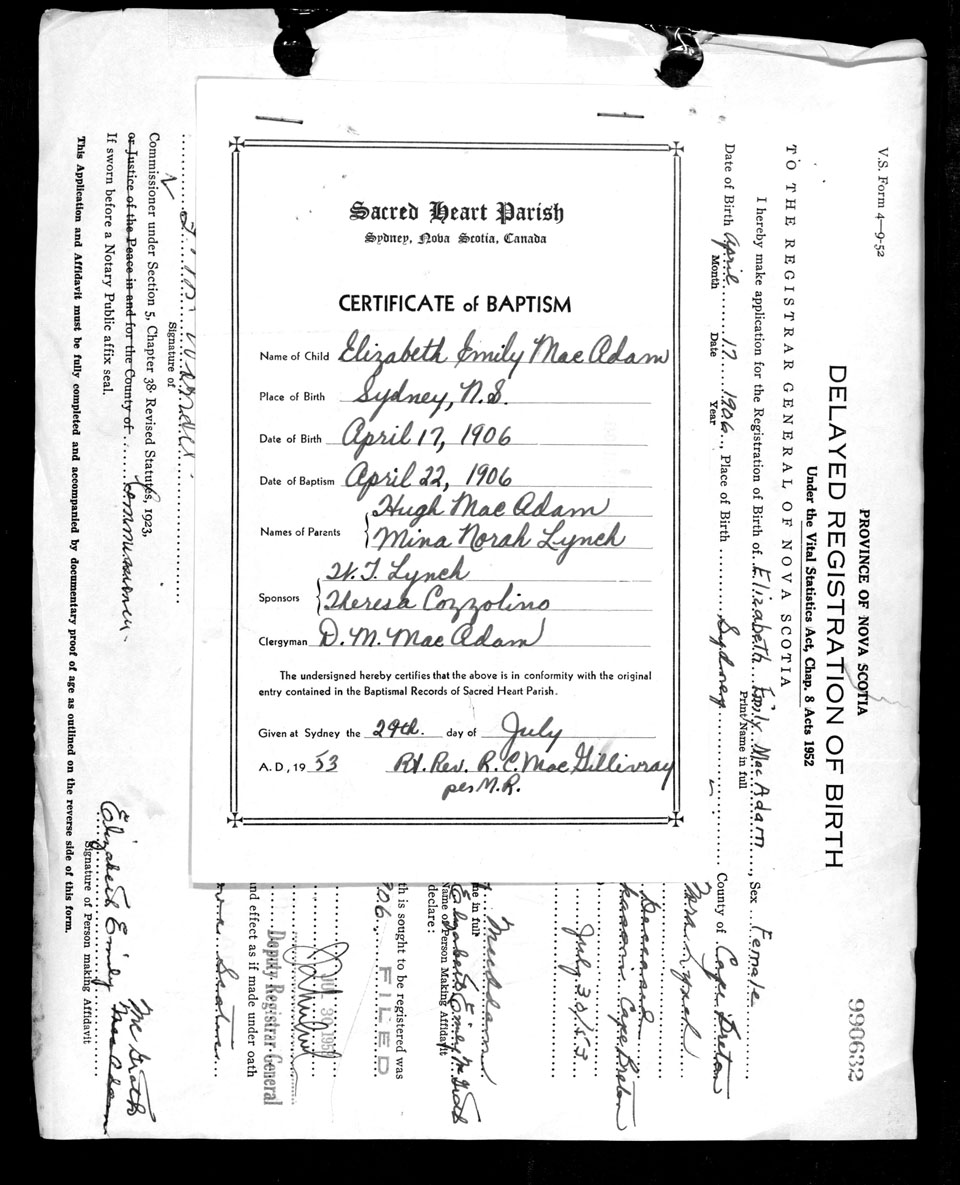 Sacred Heart Parish
Sydney, Nova Scotia, Canada
CERTIFICATE of BAPTISM
Name of Child Elizabeth Emily Mac Adam
Place of Birth Sydney, N.S.
Date of Birth April 17, 1906
Date of Baptism April 22, 1906
Names of Parents Hugh Mac Adam
Mina Norah Lynch
Sponsors W. J. Lynch
Theresa Cozzolino
Clergyman D. M. Mac Adam
The undersigned hereby certifies that the above is in conformity with the original
entry contained in the Baptismal Records of Sacred Heart Parish.
Given at Sydney the 29th. day of July
A.D., 19 53 Rt. Rev. R. C. Mac Gillivray
per M.R.
V.S. Form 4—9-52
990632
PROVINCE OF NOVA SCOTIA
DELAYED REGISTRATION OF BIRTH
Under the Vital Statistics Act, Chap. 8 Acts 1952
TO THE REGISTRAR GENERAL OF NOVA SCOTIA
I hereby make application for the Registration of Birth of Elizabeth Emily MacAdam, Sex Female
Print Name in full
Date of Birth April 17 1906, Place of Birth Sydney County of Cape Breton
Month Date Year
Nora Lynch
Cape Breton
July 30/53
MacAdam
me in full
Elizabeth Emily McGrath
Name of Person Making Affidavit
declare:
th is sought to be registered was
906. FILED
JUL 30 195
Deputy Registrar-General
nd effect as if made under oath
Signature of
Commissioner under Section 5, Chapter 38 Revised Statutes, 1923,
or Justice of the Peace in and for the County of Commissioner.
If sworn before a Notary Public affix seal.
McGrath
Elizabeth Emily MacAdam
Signature of Person making Affidavit
This Application and Affidavit must be fully completed and accompanied by documentary proof of age as outlined on the reverse side of this form.